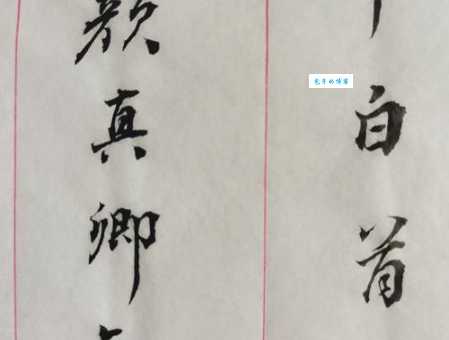 白首
颜真卿